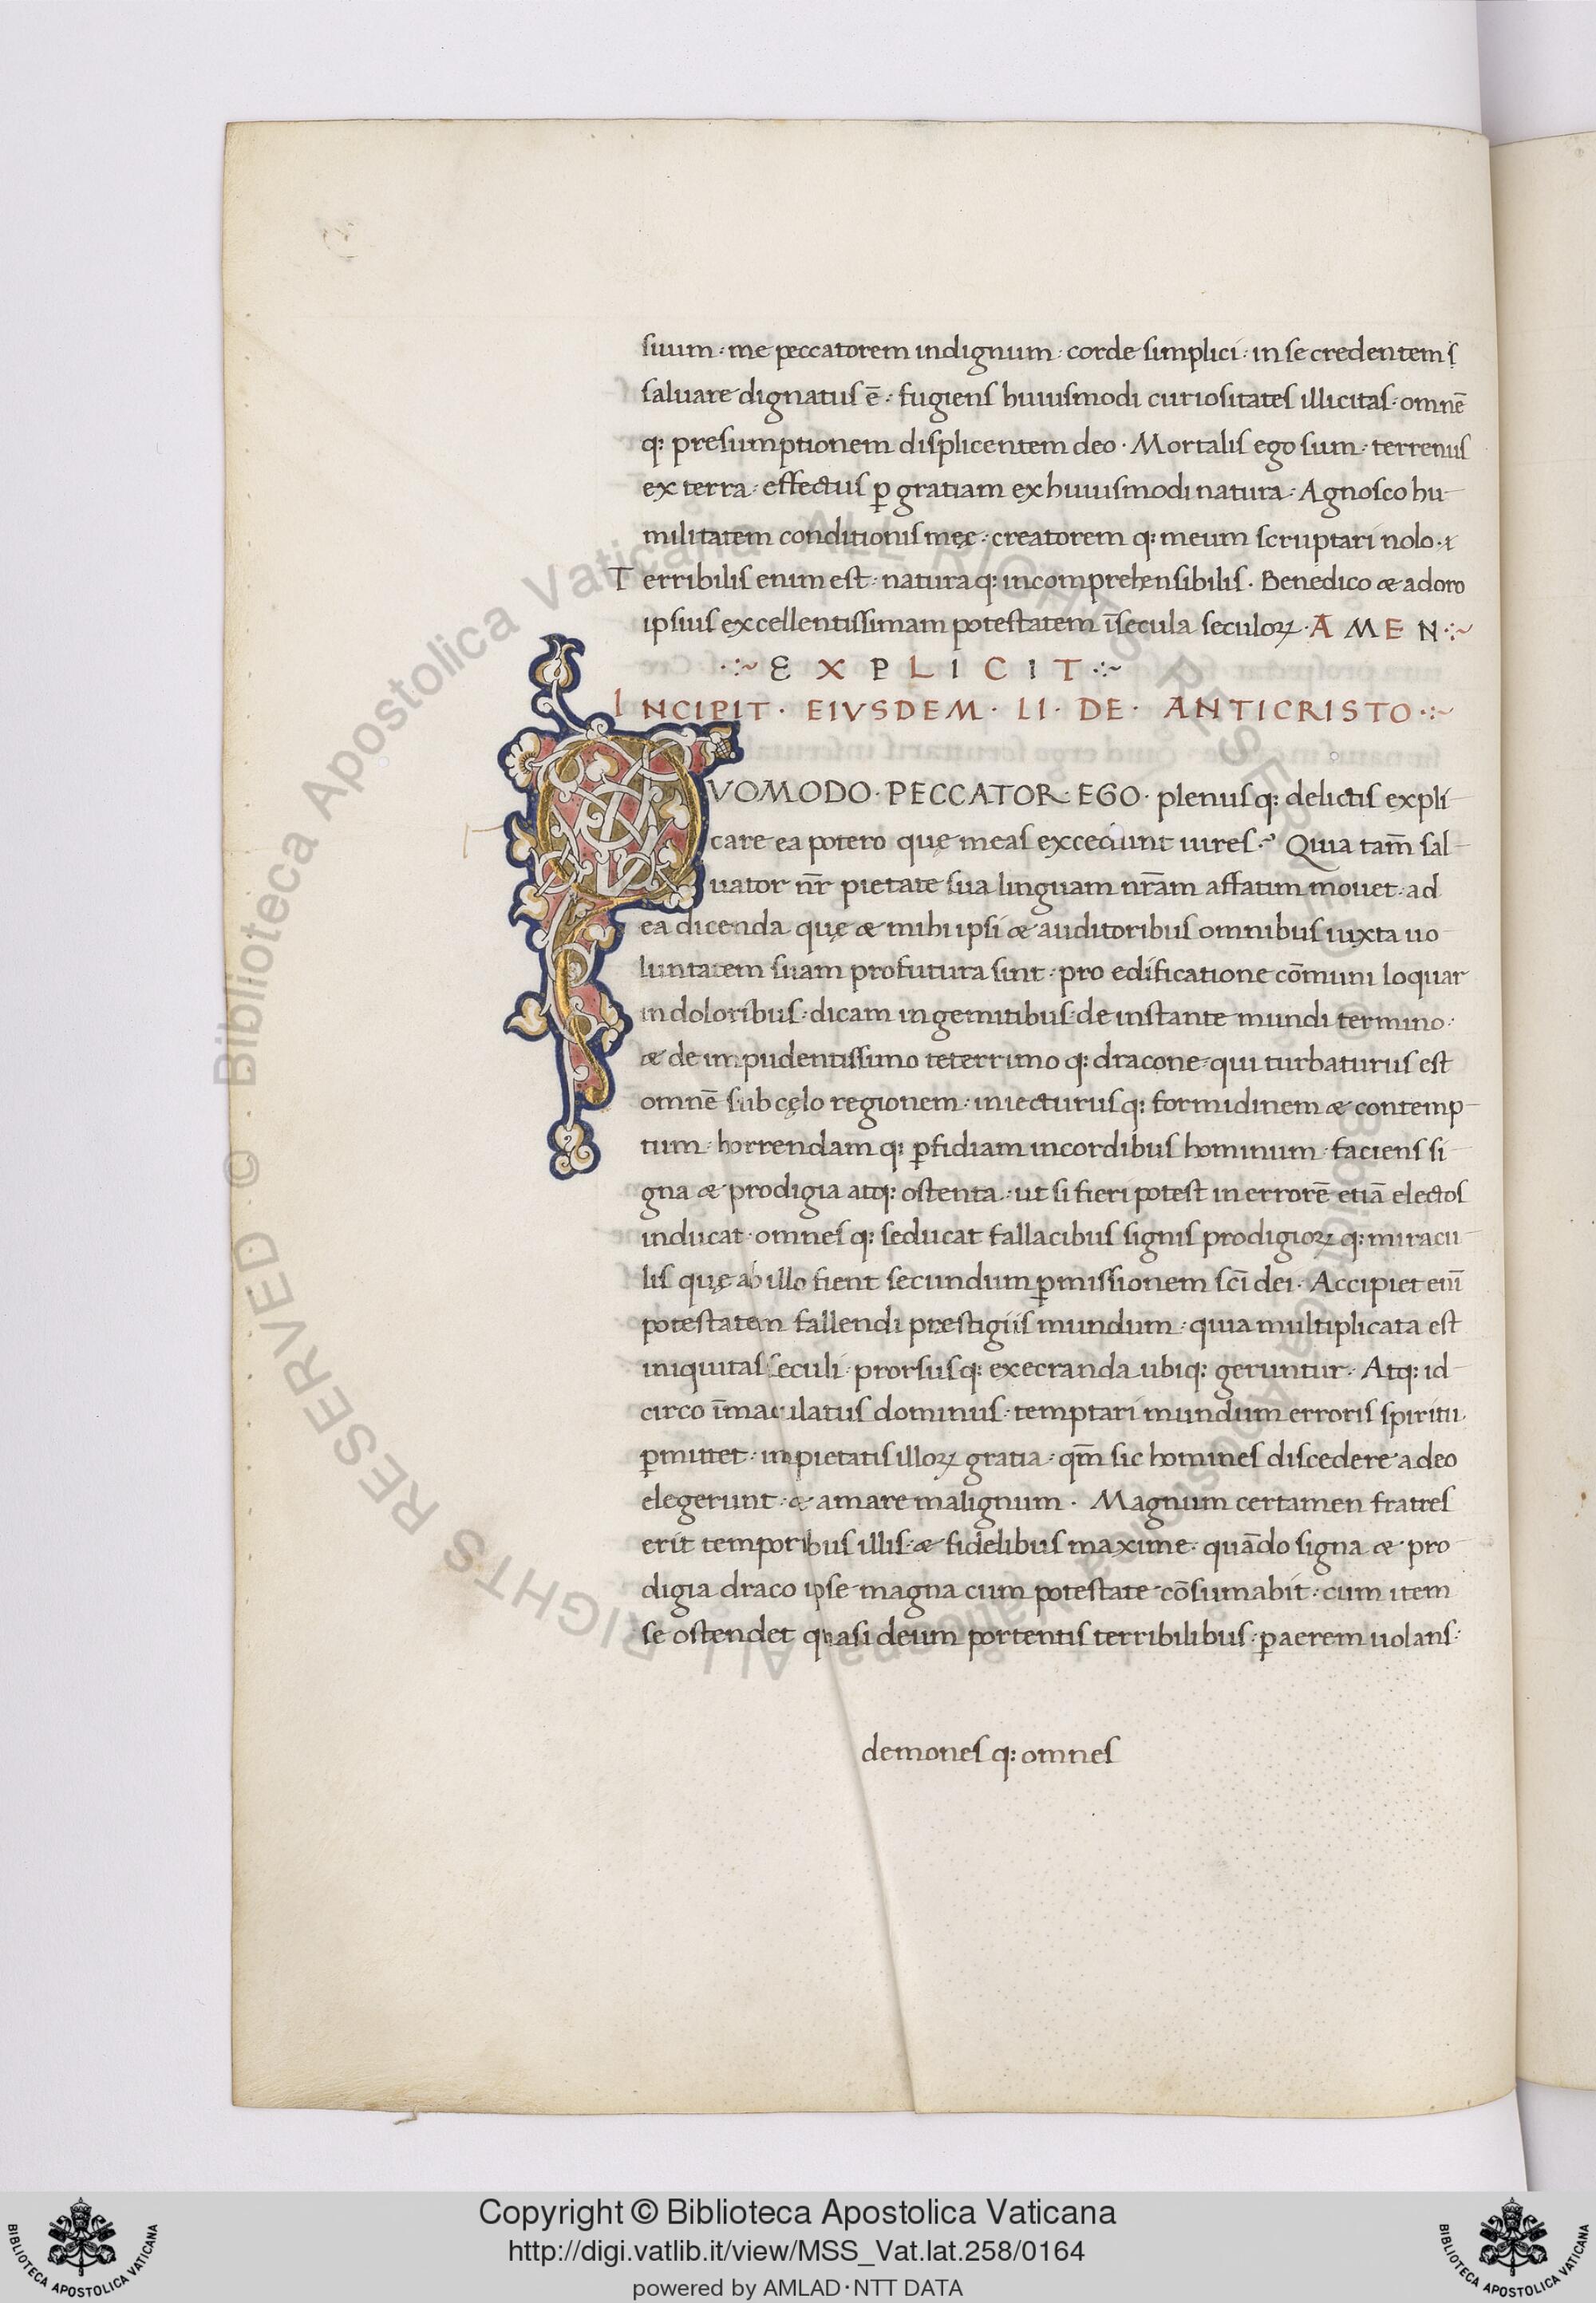 suum · me peccatorem indignum · corde simplici · in se credentem
saluare dignatus ē · fugiens huiusmodi curiositates illicitas · omnē
q; presumptionem displicentem deo · Mortalis ego sum · terrenus
ex terra · effectus ꝑ gratiam ex huiusmodi natura · Agnosco hu
militatem conditionis męę · creatorem q; meum scruptari nolo ·
Terribilis enim est · natura q; incomprehensibilis · Benedico & adoro
ipsius excellentissimam potestatem ī secula seculoꝝ · AMEN
EXPLICIT
INCIPIT · EIVSDEM · LI · DE · ANTICRISTO
QVOMODO · PECCATOR · EGO · plenus q; delictis expli
care ea potero quę meas excedunt uires? Quia tam̄ sal
uator nr̄ pietate sua linguam nr̄am affatim mouet · ad
ea dicenda quę & mihi ipsi & auditoribus omnibus iuxta uo
luntatem suam profutura sint · pro edificatione cōmuni loquar
in doloribus · dicam in gemitibus · de instante mundi termino ·
& de impudentissimo teterrimo q; dracone · qui turbaturus est
omnē sub cęlo regionem · iniecturus q; formidinem & contemp
tum · horrendam q; ꝑfidiam in cordibus hominum · faciens si
gna & prodigia atq; ostenta · ut si fieri potest in errorē etiā electos
inducat · omnes q; seducat fallacibus signis prodigioꝝ q; miracu
lis quę ab illo fient secundum ꝑmissionem sc̄i dei · Accipiet eni̅
potestatem fallendi prestigiis mundum · quia multiplicata est
iniquitas seculi · prorsus q; execranda ubiq; geruntur · Atq; id
circo īmaculatus dominus · temptari mundum erroris spiritu
ꝑmittet · inpietatis illoꝝ gratia · qm̄ sic homines discedere a deo
elegerunt · & amare malignum · Magnum certamen fratres
erit temporibus illis · & fidelibus maxime · quādo signa & pro
digia draco ipse magna cum potestate cōsumabit · cum item
se ostendet quasi deum portentis terribilibus · ꝑ aerem uolans ·
demones q; omnes
Copyright © Biblioteca Apostolica Vaticana
http://digi.vatlib.it/view/MSS_Vat.lat.258/0164
powered by AMLAD·NTT DATA
BIBLIOTECA APOSTOLICA VATICANA
BIBLIOTECA APOSTOLICA VATICANA
© Biblioteca Apostolica Vaticana ALL RIGHTS RESERVED © Biblioteca Apostolica Vaticana ALL RIGHTS RESERVED